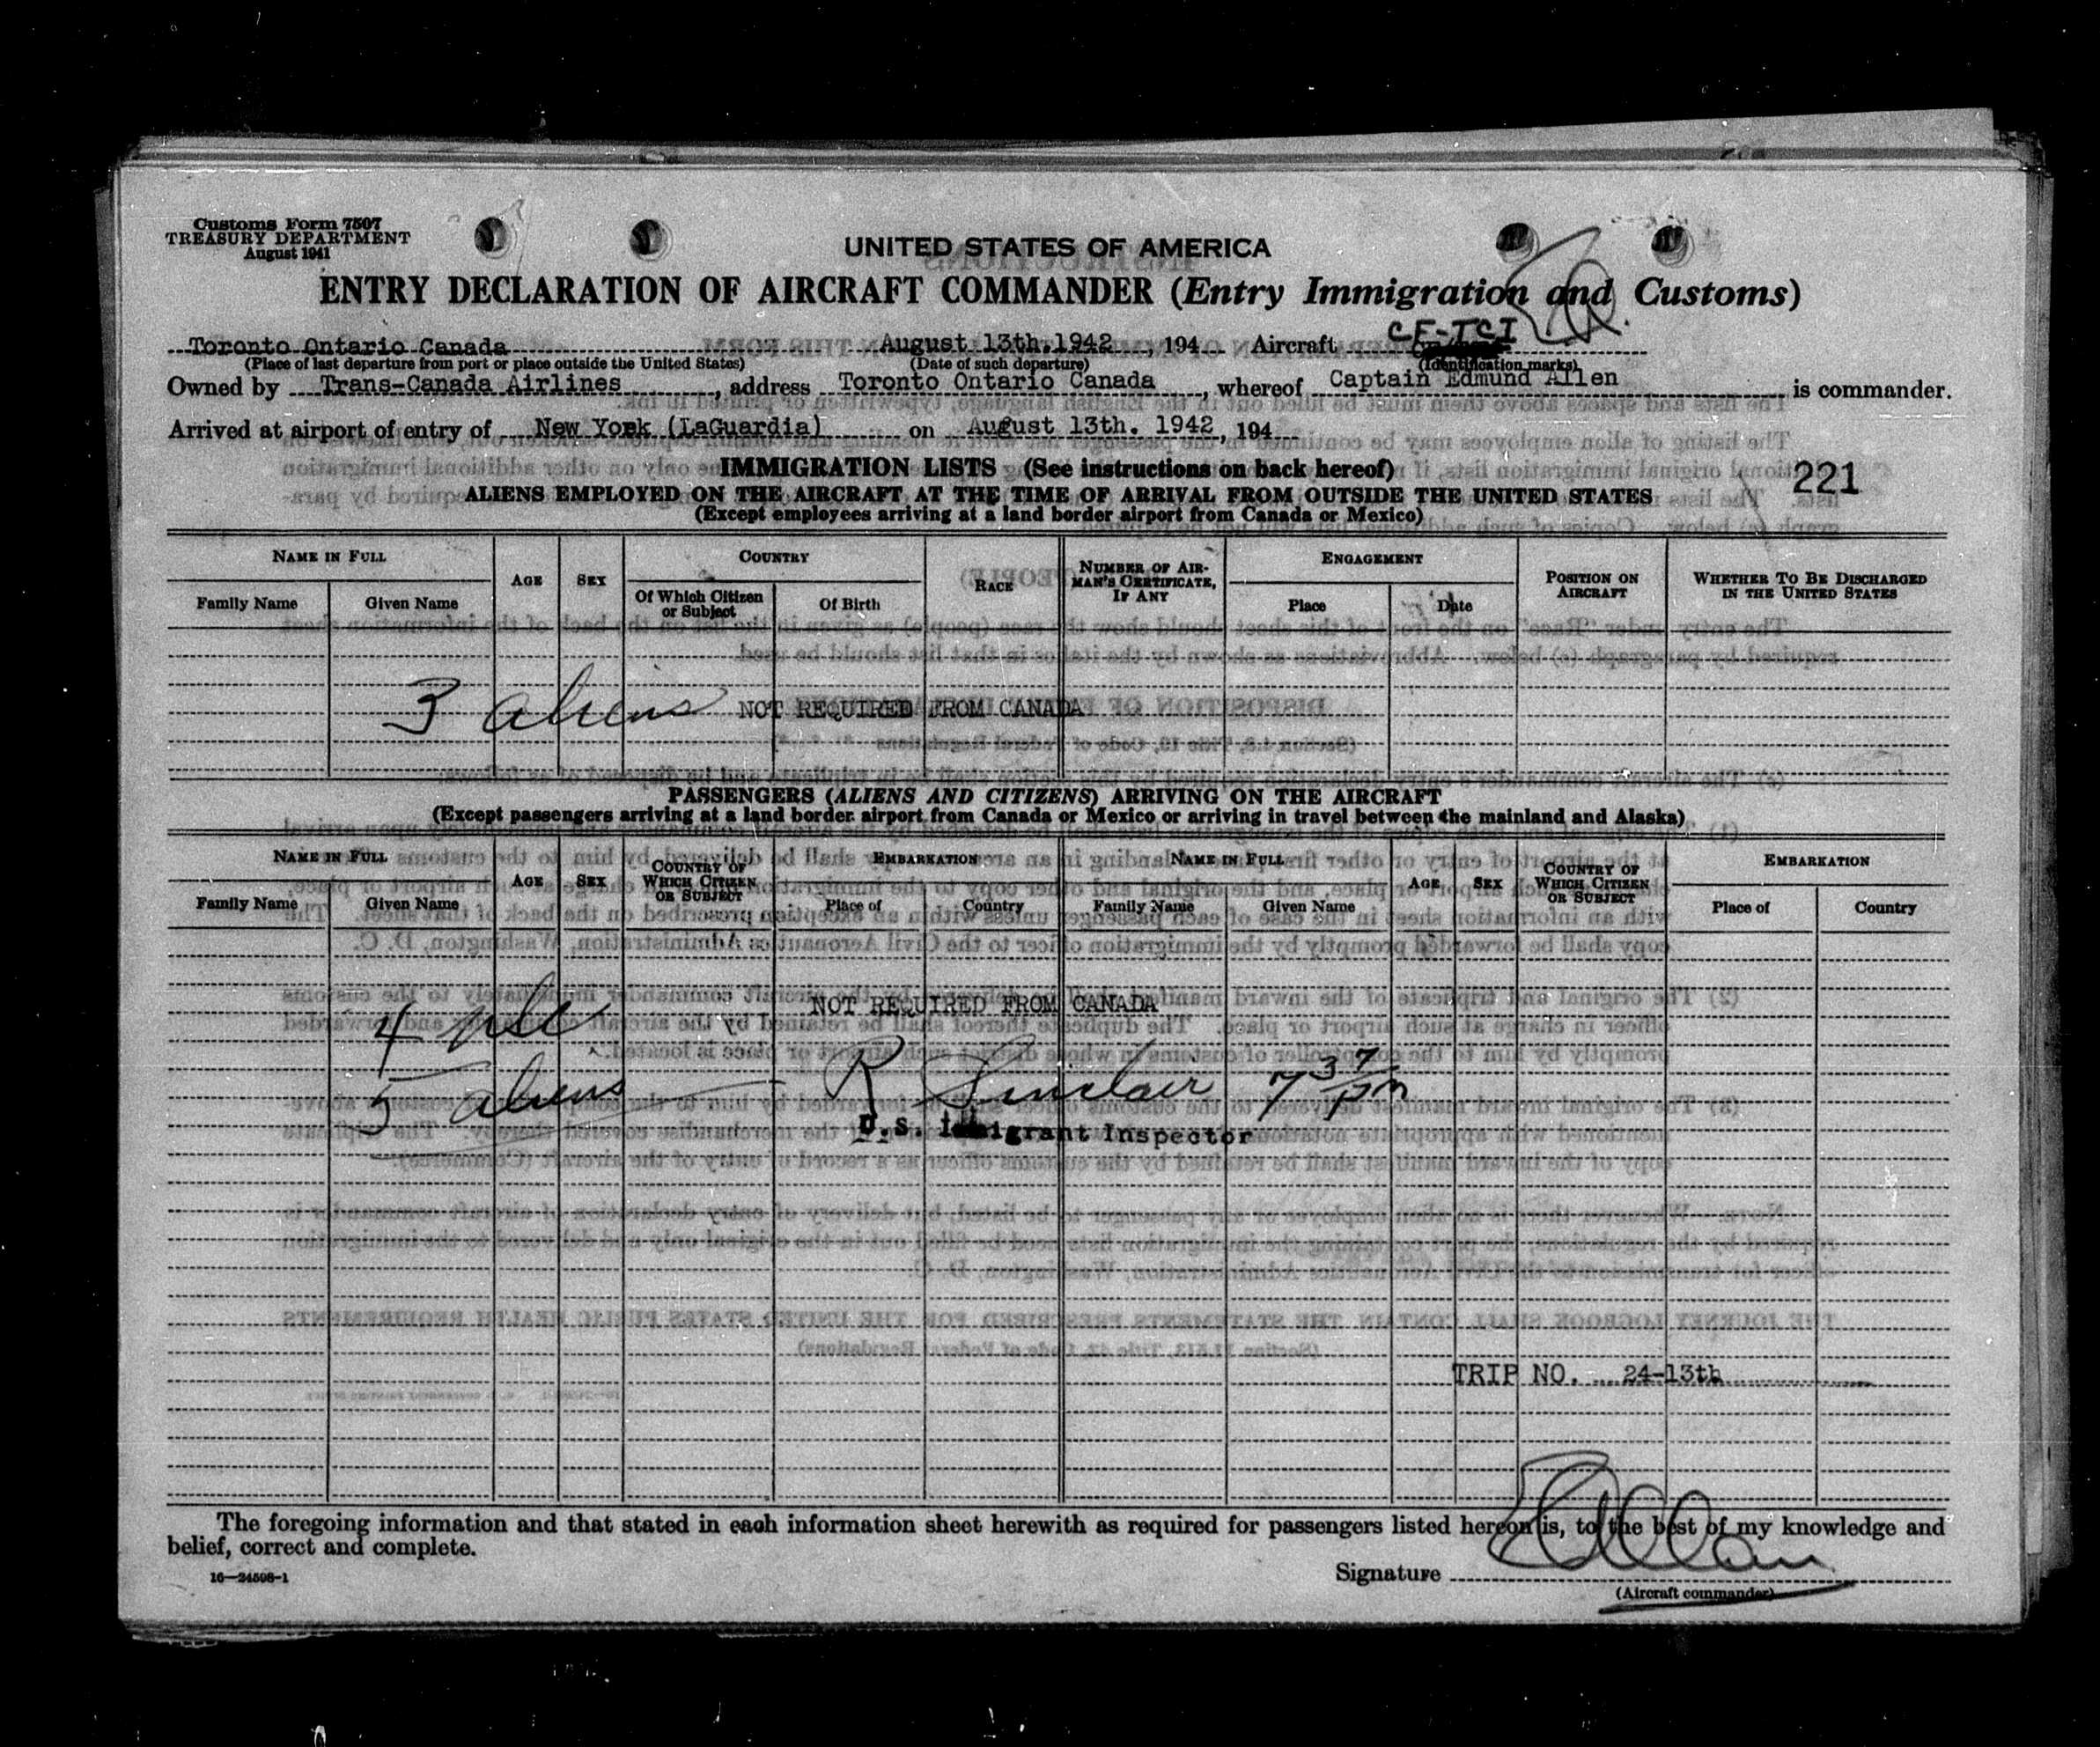 Customs Form 7507
TREASURY DEPARTMENT
August 1941
UNITED STATES OF AMERICA
ENTRY DECLARATION OF AIRCRAFT COMMANDER (Entry Immigration and Customs)
Toronto Ontario Canada August 13th.1942, 194 Aircraft CF-TCI
(Place of last departure from port or place outside the United States) (Date of such departure) (Identification marks)
Owned by Trans-Canada Airlines, address Toronto Ontario Canada, whereof Captain Edmund Allen is commander.
Arrived at airport of entry of New York (LaGuardia) on August 13th. 1942, 194
IMMIGRATION LISTS (See instructions on back hereof)
221
ALIENS EMPLOYED ON THE AIRCRAFT AT THE TIME OF ARRIVAL FROM OUTSIDE THE UNITED STATES
(Except employees arriving at a land border airport from Canada or Mexico)
NAME IN FULL AGE SEX COUNTRY RACE NUMBER OF AIRMAN'S CERTIFICATE, IF ANY ENGAGEMENT POSITION ON AIRCRAFT WHETHER TO BE DISCHARGED IN THE UNITED STATES
Family Name Given Name Of Which Citizen or Subject Of Birth Place Date
3 aliens NOT REQUIRED FROM CANADA
PASSENGERS (ALIENS AND CITIZENS) ARRIVING ON THE AIRCRAFT
(Except passengers arriving at a land border airport from Canada or Mexico or arriving in travel between the mainland and Alaska)
NAME IN FULL AGE SEX COUNTRY OF WHICH CITIZEN OR SUBJECT EMBARKATION NAME IN FULL AGE SEX COUNTRY OF WHICH CITIZEN OR SUBJECT EMBARKATION
Family Name Given Name Place of Country Family Name Given Name Place of Country
NOT REQUIRED FROM CANADA
4
5 aliens R Sinclair 7 37 pm
U.S. Immigrant Inspector
TRIP NO. 24-13th
The foregoing information and that stated in each information sheet herewith as required for passengers listed hereon is, to the best of my knowledge and
belief, correct and complete.
16—24598-1
Signature E Allan
(Aircraft commander)